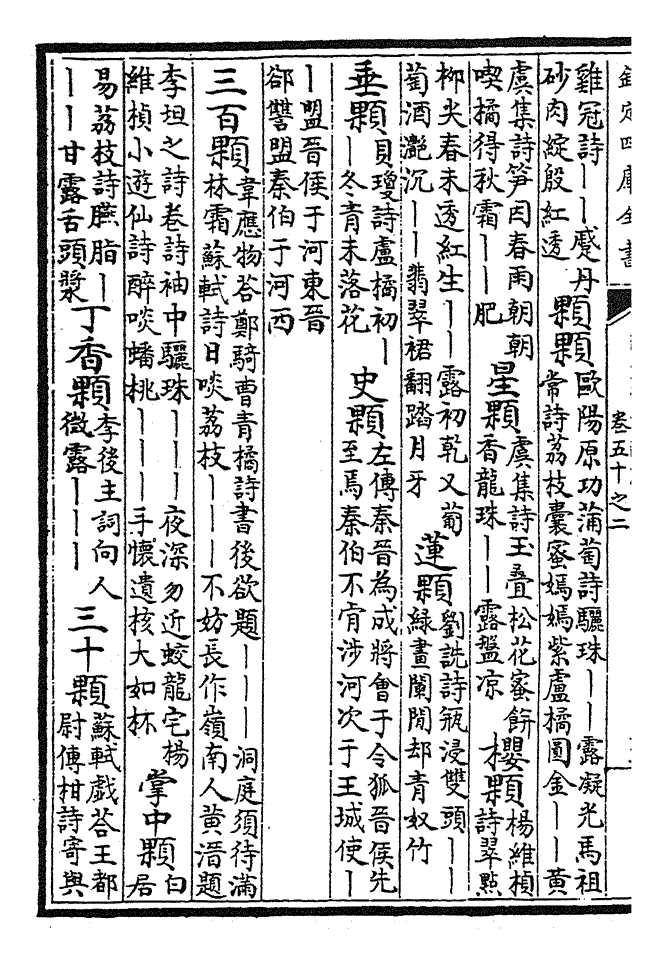 欽定四庫全書
卷五十之二
雞冠詩——蹙丹
砂肉綻殷紅透
顆顆
歐陽原功蒲萄詩驪珠——露凝光馬祖
常詩荔枝囊蜜嫣嫣紫盧橘圓金——黃
虞集詩笋因春雨朝朝
喫橘得秋霜——肥
星顆
虞集詩玉疊松花蜜餅
香龍珠——露盤凉
櫻顆
楊維楨
詩翠點
柳尖春未透紅生——露初乾又葡
萄酒灔沉——翡翠裙翻踏月牙
蓮顆
劉詵詩瓶浸雙頭——
緑畫闌閒却青奴竹
垂顆
貝瓊詩盧橘初—
—冬青未落花
史顆
左傳秦晉為成將會于令狐晉侯先
至焉秦伯不肯涉河次于王城使—
—盟晉侯于河東晉
郤犫盟秦伯于河西
三百顆
韋應物答鄭騎曹青橘詩書後欲題———洞庭須待滿
林霜蘇軾詩日啖荔枝———不妨長作嶺南人黃溍題
李坦之詩卷詩袖中驪珠———夜深勿近蛟龍宅楊
維楨小遊仙詩醉啖蟠桃———手懷遺核大如杯
掌中顆
白
居
易荔枝詩臙脂—
——甘露舌頭漿
丁香顆
李後主詞向人
微露———
三十顆
蘇軾戲答王都
尉傳柑詩寄與